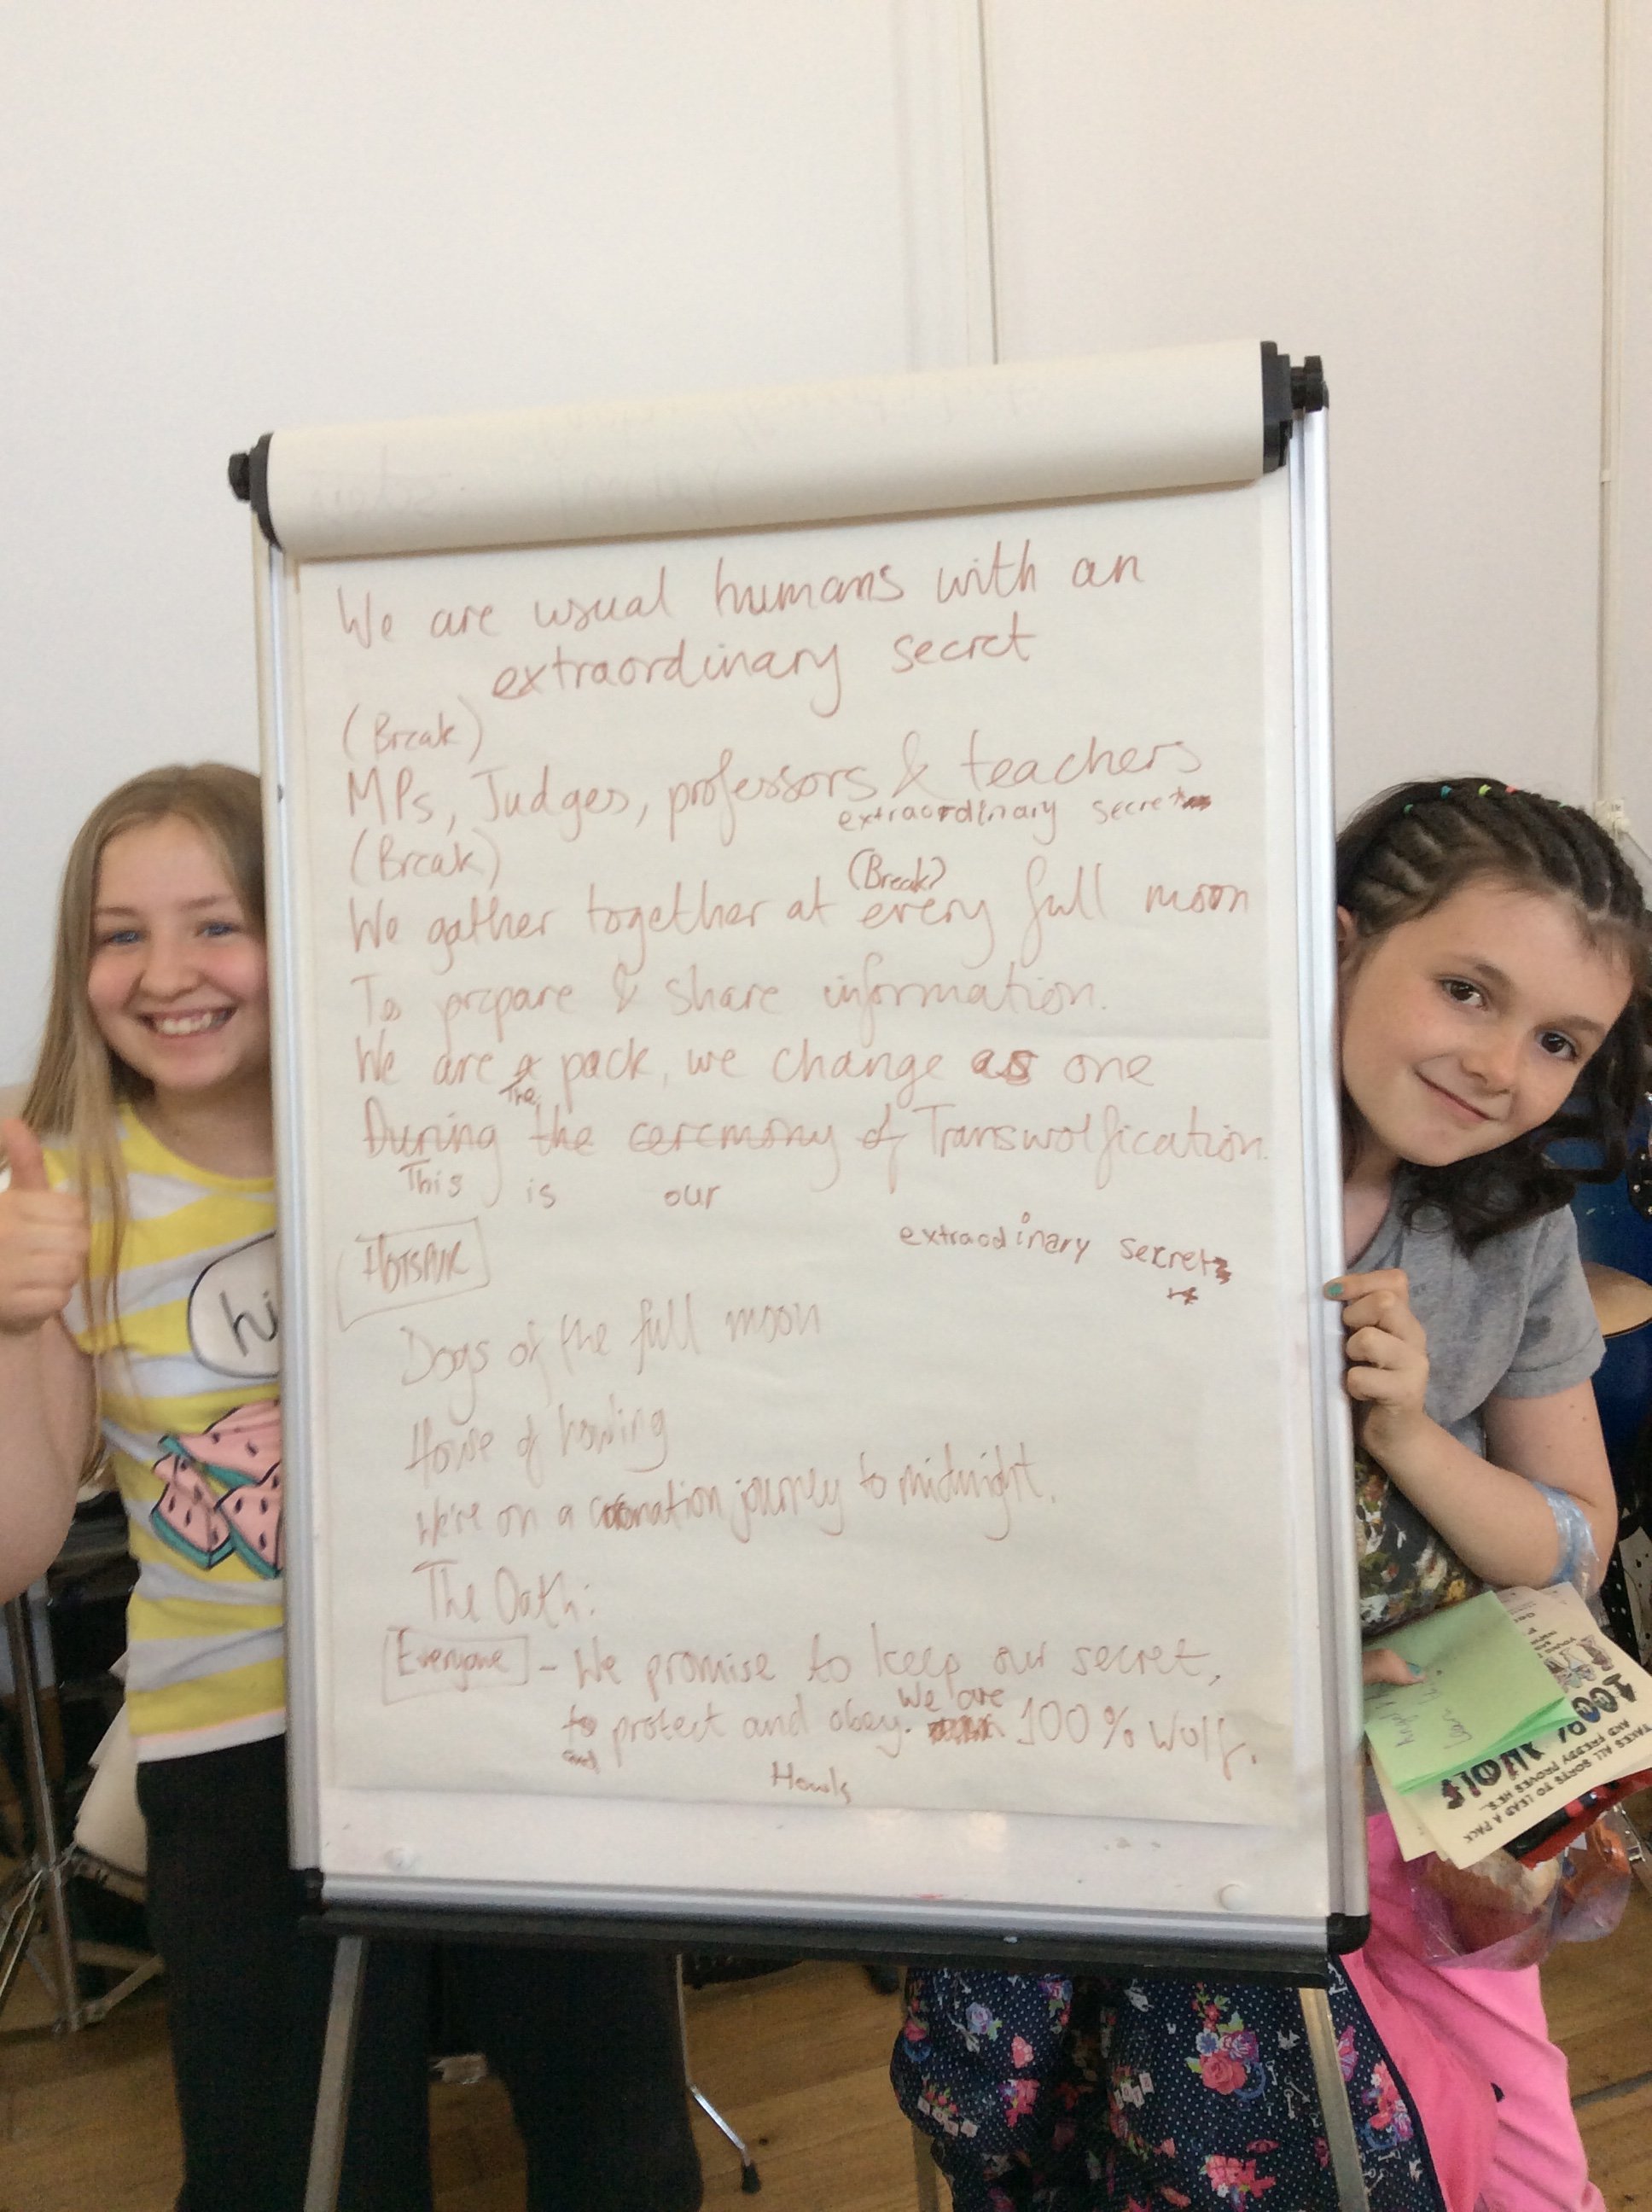 We are usual humans with an
extraordinary secret
(Break)
MPs, Judges, professors & teachers
extraordinary secret
(Break)
(Break)
We gather together at every full moon
To prepare & share information.
We are a pack, we change as one
The
During the ceremony of Transwolfication.
This is our
extraodinary secret
HOTSPUR
Dogs of the full moon
House of howling
We're on a coronation journey to midnight.
The Oath:
Everyone - We promise to keep our secret,
We are
to protect and obey. 100% Wolf.
and
Howls
hi
100%
WOLF
TAKES ALL SORTS TO LEAD A PACK
AND FREDDY PROVES HE'S